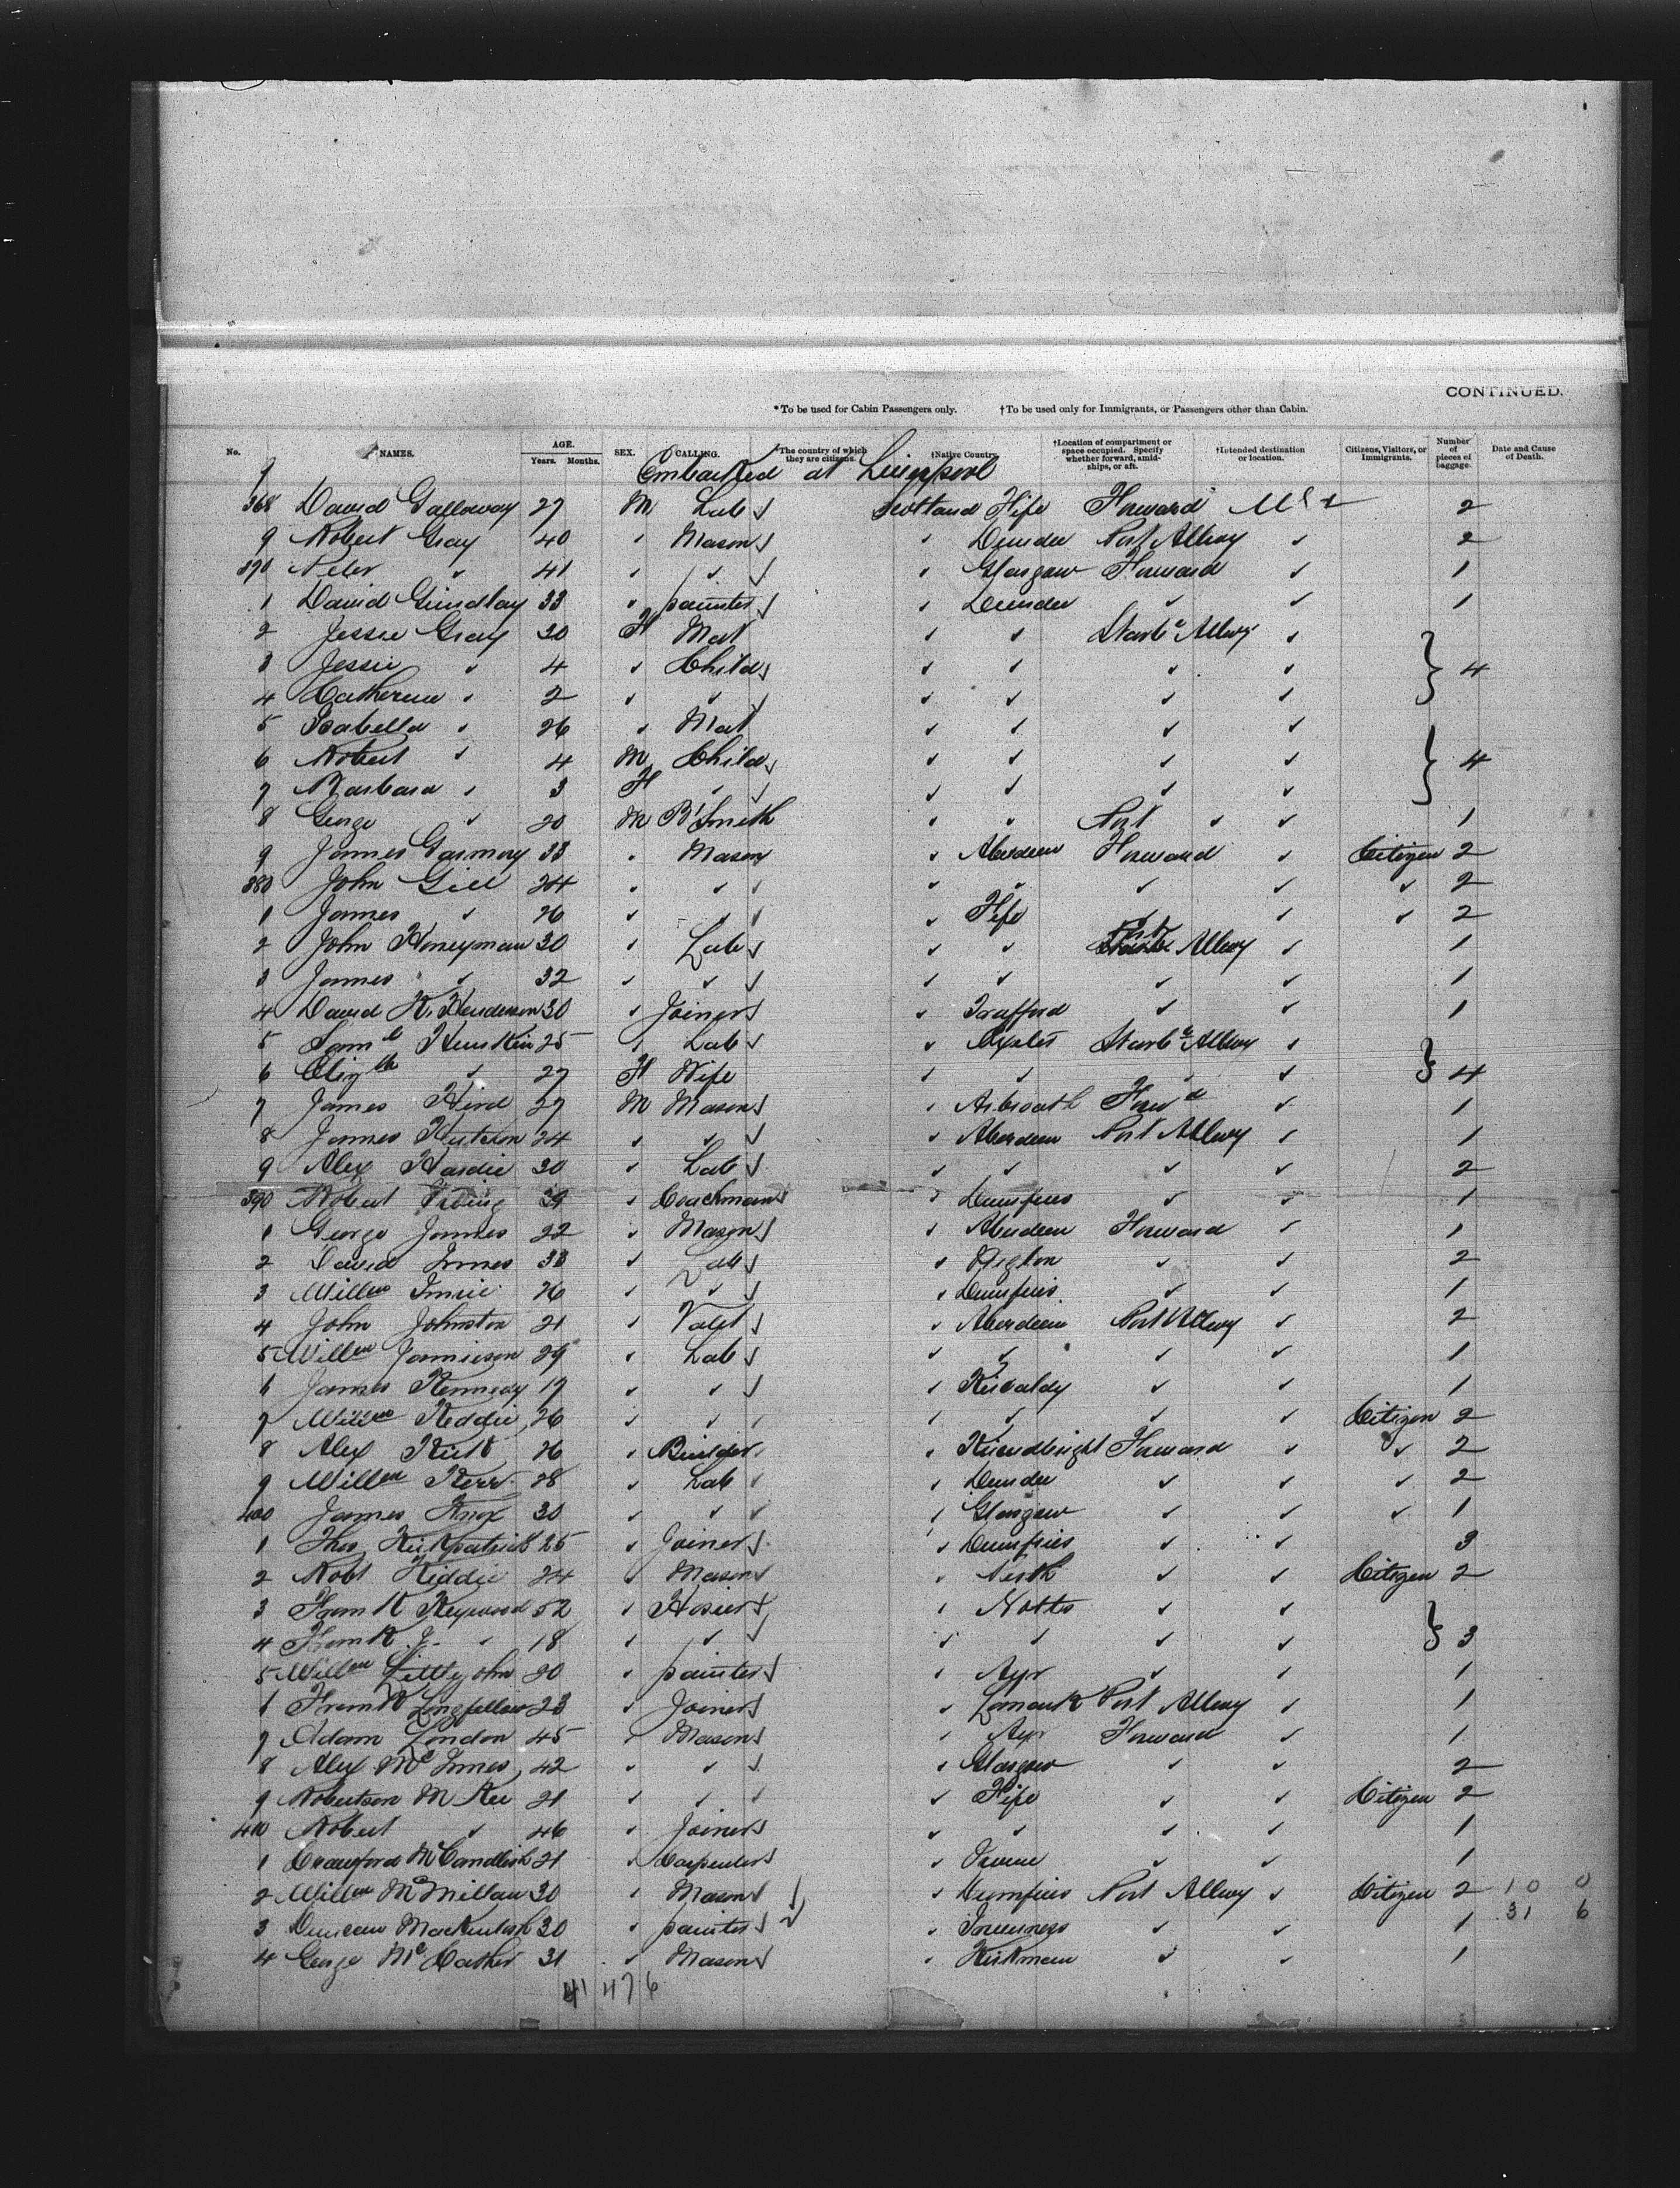 CONTINUED.
*To be used for Cabin Passengers only. †To be used only for Immigrants, or Passengers other than Cabin.
No. NAMES. AGE. Years. Months. SEX. CALLING. *The country of which they are citizens. †Native Country †Location of compartment or space occupied. Specify whether forward, amidships, or aft. †Intended destination or location. Citizens, Visitors, or Immigrants. Number of pieces of baggage. Date and Cause of Death.
Embarked at Liverpool
368 David Galloway 27 M Lab Scotland Fife Forward 2
9 Robert Gray 40 " Mason " Dundee Port Allway " 2
370 Peter " 41 " " " Glasgow Forward " 1
1 David Grindlay 33 " painter " Dundee " " 1
2 Jessie Gray 30 F Mat " " Starbd Allway "
3 Jessie " 4 " Child " " " " 4
4 Catherine " 2 " " " " " "
5 Isabella " 26 " Mat " " " "
6 Robert " 4 M Child " " " " 4
7 Barbara " 3 F " " " " "
8 George " 20 M B Smith " " Port " " 1
9 James Garmory 33 " Mason " Aberdeen Forward " Citizen 2
380 John Gill 24 " " " " " " " 2
1 James " 26 " " " Fife " " " 2
2 John Honeyman 30 " Lab " " Port Allway " 1
3 James " 32 " " " " " " 1
4 David K. Henderson 30 " Joiner " Trafford " " 1
5 Saml 25 " Lab " Starbd Allway "
6 Elizth " 27 F Wife " " " " 4
7 James Hird 27 M Mason " Arbroath Forwd " 1
8 James 24 " " " Aberdeen Port Allway " 1
9 Alex Hardie 30 " Lab " " " " 2
390 Robert Irving 39 " Coachman " Dumfries " " 1
1 George Jamies 22 " Mason " Aberdeen Forward " 1
2 David Innes 33 " Lab " " " 2
3 Willm Imrie 26 " " " Dumfries " " 1
4 John Johnston 21 " Valet " Aberdeen Port Allway " 2
5 Willm Jamieson 29 " Lab " " " " 1
6 James Kennedy 17 " " " Kircaldy " " 1
7 Willm Keddie 26 " " " " " " Citizen 2
8 Alex Kirk 26 " Builder " Kircudbright Forward " " 2
9 Willm Kerr 28 " Lab " Dundee " " " 2
400 James Knox 30 " " " Glasgow " " " 1
1 Thos Kirkpatrick 25 " Joiner " Dumfries " " 3
2 Robt Kiddie 24 " Mason " Perth " " Citizen 2
3 Frank Keywood 52 " Hosier " Notts " "
4 Frank J. " 18 " " " " " " 3
5 Willm Littlejohn 20 " painter " Ayr " " 1
6 Frank Longfellow 23 " Joiner " Lanark Port Allway " 1
7 Adam London 45 " Mason " Ayr Forward " 1
8 Alex McInnes 42 " " " Glasgow " " 2
9 Robertson McKee 21 " " " Fife " " Citizen 2
410 Robert " 46 " Joiner " " " " 1
1 Crawford McCandlish 21 " Carpenter " Irvine " " 1
2 Willm McMillan 30 " Mason " Dumfries Port Allway " Citizen 2 10 0
3 Duncan Mackintosh 30 " painter " Inverness " " 1 31 6
4 George McCather 31 " Mason " " " 1
41 476